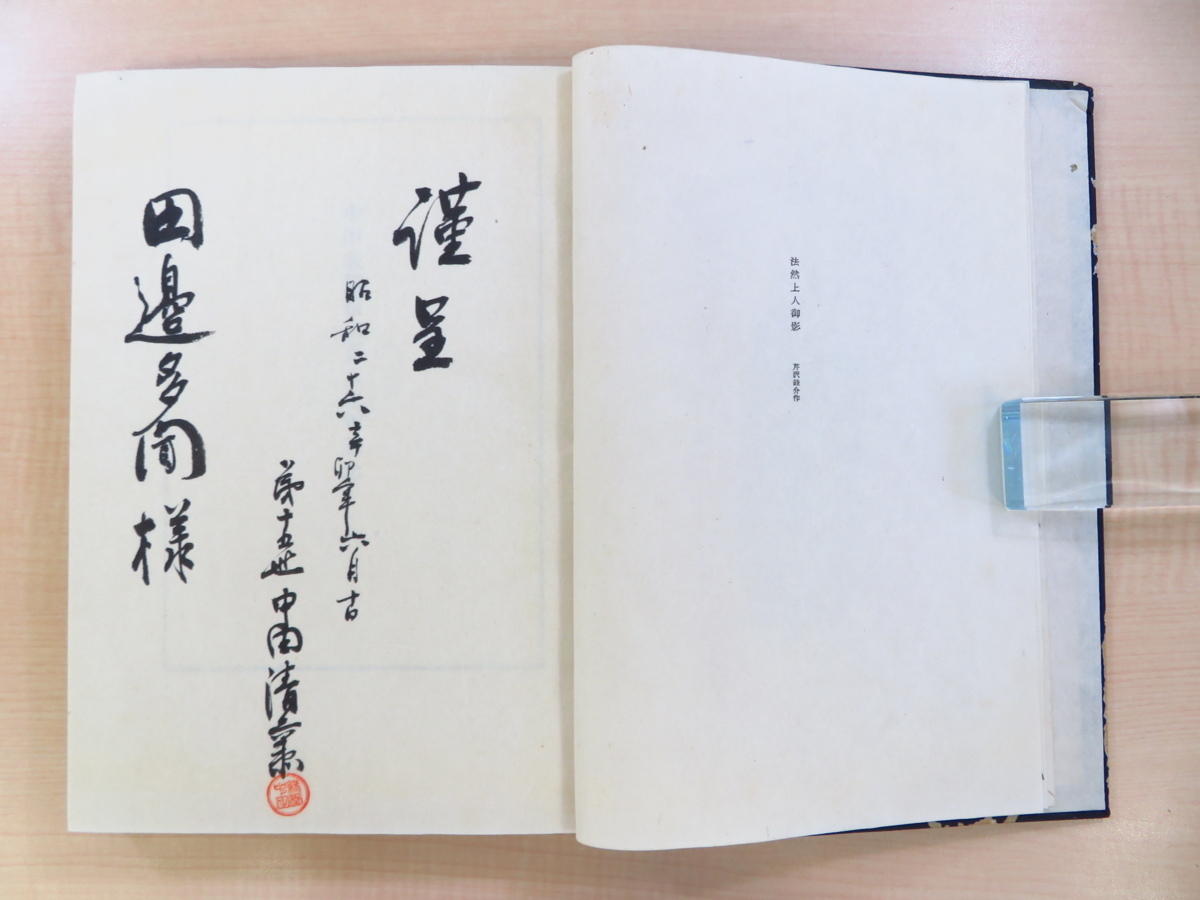 法然上人御影
芹沢銈介作
謹呈
昭和二十六辛卯年六月吉
第十五世中田清兵衛
田邊多聞様